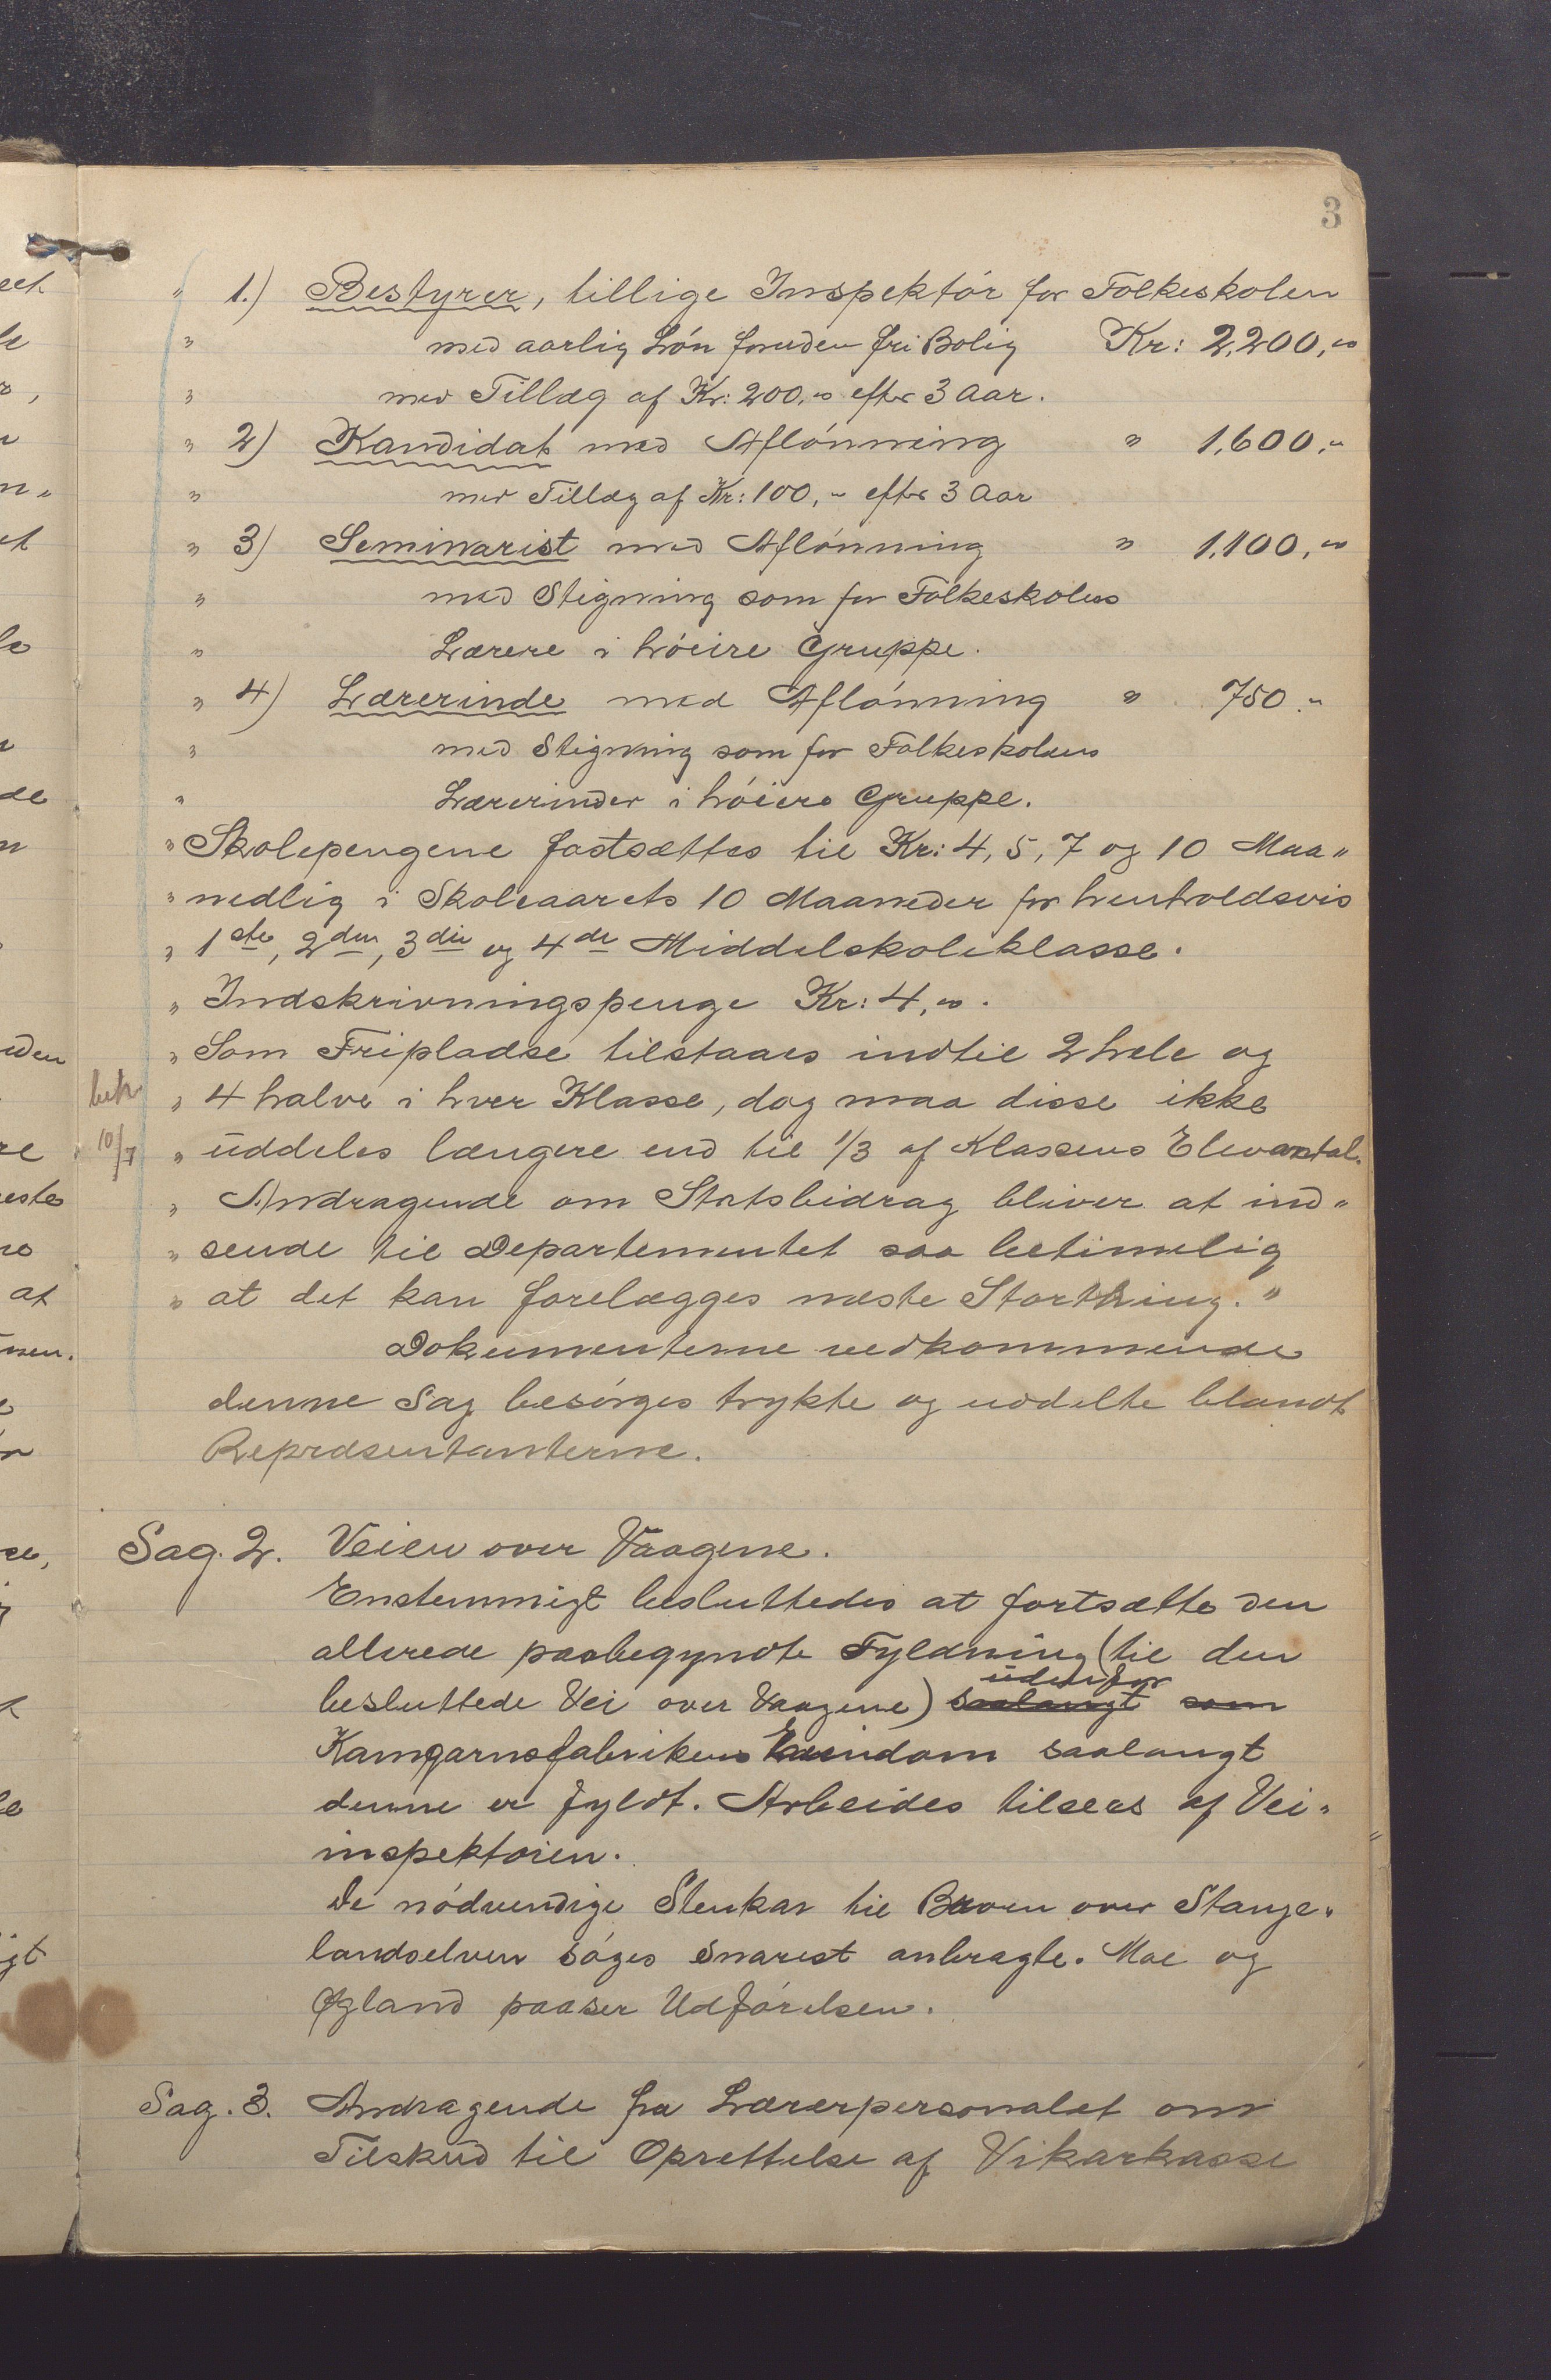 3
" 1.) Bestyrer, tillige Inspektør for Folkeskolen
" med aarlig Løn foruden fri Bolig Kr: 2,200,00
" med Tillæg af Kr: 200,00 efter 3 Aar.
" 2) Kandidat med Aflønning " 1,600,-
" med Tillæg af Kr: 100,- efter 3 Aar
" 3) Seminarist med Aflønning " 1,100,00
" med Stigning som for Folkeskolens
" Lærere i høiere Gruppe.
" 4) Lærerinde med Aflønning " 750.-
" med Stigning som for Folkeskolens
" Lærerinder i høiere Gruppe.
" Skolepengene fastsættes til Kr: 4, 5, 7 og 10 Maa"
" nedlig i Skoleaarets 10 Maaneder for henholdsvis
" 1ste, 2den, 3die og 4de Middelskoleklasse.
" Indskrivningspenge Kr: 4,00.
" Som Fripladse tilstaaes indtil 2 hele og
beh. " 4 halve i hver Klasse, dog maa disse ikke
10/7 " uddeles længere end til 1/3 af Klassens Elevantal.
" Andragende om Statsbidrag bliver at ind"
" sende til Departementet saa betimelig
" at det kan forelægges næste Storthing."
Dokumenterne vedkommende
denne Sag besørges trykte og uddelte blandt
Repræsentanterne.
Sag. 2. Veien over Vaagene.
Enstemmigt besluttedes at fortsætte den
allerede paabegyndte Fyldning (til den
udenfor
besluttede Vei over Vaagene) saalangt som
Kamgarnsfabrikens Eiendom saalangt
denne er fyldt. Arbeides tilsees af Vei"
inspektøren.
De nødvendige Stenkar til Broen over Stange"
landselven søges snarest anbragte. Moe og
Øgland paaser Udførelsen.
Sag. 3. Andragende fra Lærerpersonalet om
Tilskud til Oprettelse af Vikarkasse